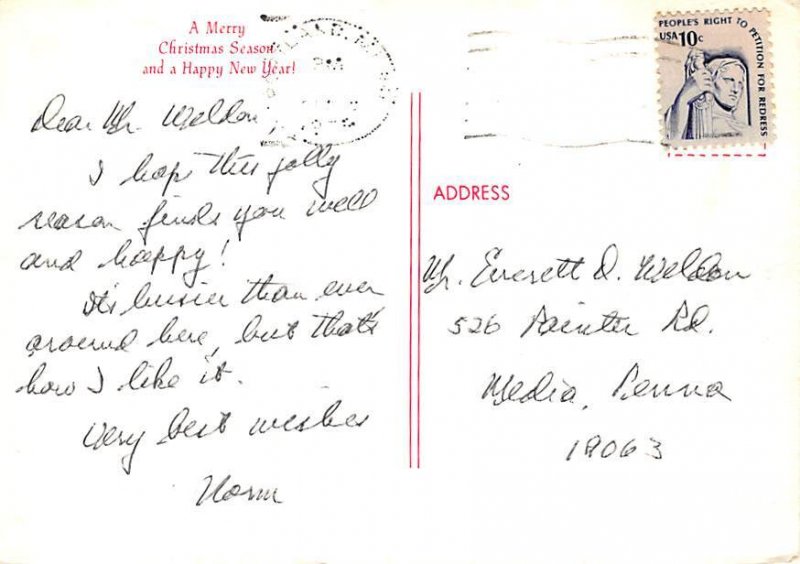 A Merry
Christmas Season
and a Happy New Year!
Dear Mr. Weldon,
I hope this jolly
season finds you well
and happy!
It's busier than ever
around here, but that's
how I like it.
Very best wishes
Norm
PEOPLE'S RIGHT TO PETITION FOR REDRESS
USA 10c
ADDRESS
Mr. Everett D. Weldon
526 Painter Rd.
Media, Penna
19063